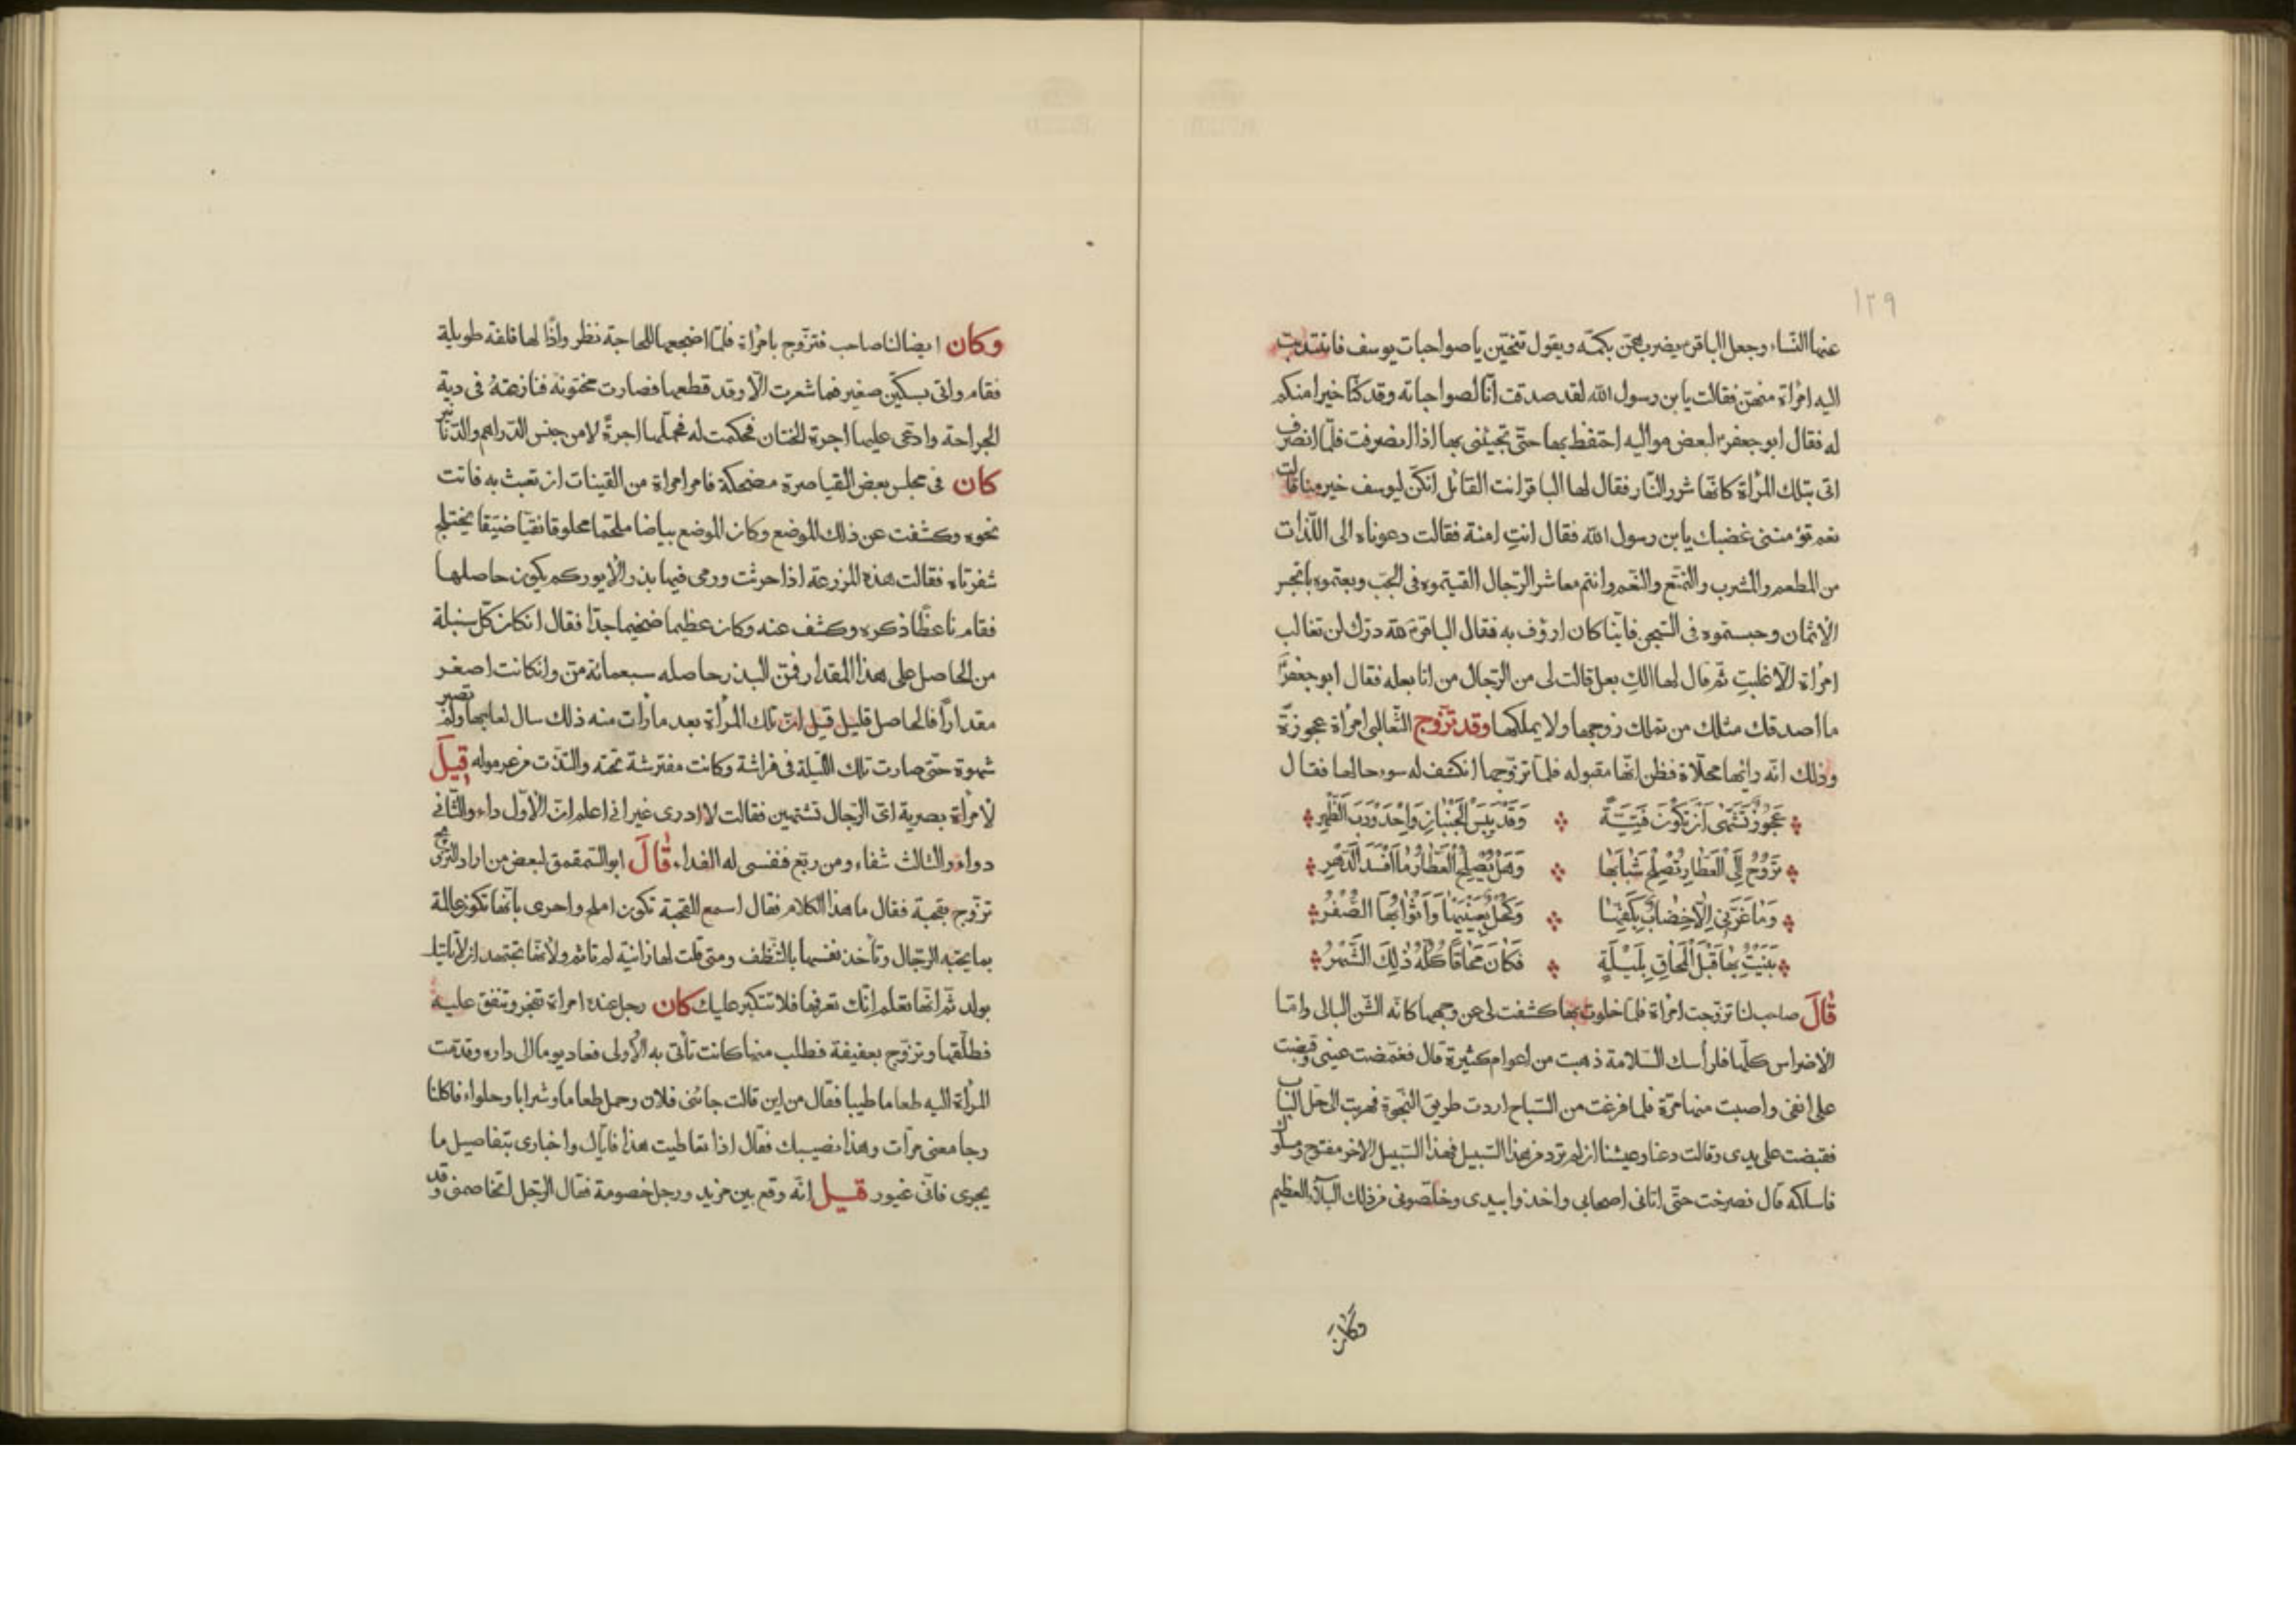 ١٢٩
عنها النساء وجعل الباقر يضربهن بكمه ويقول تنحين يا صواحبات يوسف فانتدبت
اليه امرأة منهن فقالت يابن رسول الله لقد صدقت انا لصواحباته وقد كنا خيرا منكم
له فقال ابو جعفر لبعض مواليه احتفظ بها حتى تجيئنى بها اذا انصرفت فلما انصرف
اتى بتلك المرأة كانها شرر النار فقال لها الباقر انت القائل انكن ليوسف خير منا قالت
نعم تؤمننى غضبك يابن رسول الله فقال انتِ امنة فقالت دعوناه الى اللذات
من المطعم والمشرب والتمتع والنعم وانتم معاشر الرجال القيتموه فى الجب وبعتموه بابخس
الاثمان وحبستموه فى السجن فايّنا كان ارؤف به فقال الباقر لله درك لن تغالب
امرأة الّا غلبت ثم قال لها الكِ بعل قالت لى من الرجال من انا بعله فقال ابو جعفر
ما اصدقك مثلك من تملك زوجها ولا يملكها وقد تزوج الثعالبى امرأة عجوزة
وذلك انه راىها محلاة فظن انها مقبوله فلما تزوجها انكشف له سوء حالها فقال
عَجُوزٌ تَشَهّى اَنْ تَكُونَ فَتِيَّةً وَقَدْ يَبِسَ الْجَنْبانِ وَاحْدَوْدَبَ الظَّهْرِ
تَرُوحُ اِلَى الْعَطّارِ تُصْلِحُ شَبابَها وَهَلْ يُصْلِحُ الْعَطّارُ ما اَفْسَدَ الدَّهْرِ
وَما غَرَّنِى اِلّا خِضابٌ بِكَفِّها وَكُحْلٌ بِعَيْنَيْها وَاَثْوابُهَا الصُّفْرُ
بَنَيْتُ بِها قَبْلَ الْمَحاقِ بِلَيْلَةٍ فَكانَ مَحاقًا كُلُّهُ ذٰلِكَ الشَّهْرُ
قالَ صاحب لنا تزوجت امرأة فلما خلوت بها كشفت لى عن وجهها كانه الشن البالى واما
الاضراس كلها فلرأسك السلامة ذهبت من اعوام كثيرة قال فغمضت عينى وقبضت
على انفى واصبت منها مرة فلما فرغت من السباح اردت طريق النجوة فهربت الى الباب
فقبضت على يدى وقالت دعنا وعيشنا ان لم ترد من هذا السبيل فهذا السبيل الاخر مفتوح
فاسلكه قال فصرخت حتى اتانى اصحابى واخذوا بيدى وخلصونى من ذلك البلاء العظيم
وكان
وكان ايضا لنا صاحب فتزوج بامرأة فلما اضجعها للحاجة نظر واذا لها قلفة طويلة
فقام واتى بسكين صغير فما شعرت الا وقد قطعها فصارت مختونة فنازعته فى دية
الجراحة وادعى عليها اجرة الختان فحكمت له فحملها اجرة لا من جنس الدراهم والدنانير
كان فى مجلس بعض القياصرة مضحكة فامر امراة من القينات ان تعبث به فاتت
نحوه وكشفت عن ذلك الموضع وكان الموضع بياضا ملحّما محلوقا نقيا ضيقا يختلج
شفرتاه فقالت هذه المزرعة اذا حرثت ورمى فيها بذر كم يكون حاصلها
فقام ناعظا ذكره وكشف عنه وكان عظيما ضخيما جدا فقال انكان كل سنبلة
من الحاصل على هذا المقدار فمن البذر حاصله سبعمائة من وانكانت اصغر
مقدارًا فالحاصل قليل قيل ان تلك المرأة بعد ما رأت منه ذلك سال لعابها ولم تصبر
شهوة حتى صارت تلك الليلة فى فراشة وكانت مفترشة تحته والتذت من عرموله قيلَ
لامرأة بصرية اى الرجال تشتهين فقالت لا ادرى غير انى اعلم ان الاول داء والثانى
دواء والثالث شفاء ومن ربّع فنفسى له الفداء قالَ ابو السمقمق لبعض من اراد التزويج
تزوج بقحبة فقال ما هذا الكلام فقال اسمع القحبة تكون املح واحرى بانها تكون عالمة
بما يحبه الرجال وتأخذ نفسها بالتنظف ومتى قلت لها زانية لم تاثم ولانها تجتهد ان لا تاتيك
بولد ثم انها تعلم انك تعرفها فلا تتكبر عليك كان رجل عنده امراة تفجر وتنفق عليه
فطلقها وتزوج بعفيفة فطلب منها ما كانت تأتى به الاولى فعاد يوما الى داره وقدمت
المرأة اليه طعاما طيبا فقال من اين قالت جائنى فلان وحمل طعاما وشرابا وحلواء فاكلنا
وجامعنى مرات وهذا نصيبك فقال اذا تعاطيت هذا فاياك واخبارى بتفاصيل ما
يجرى فانى غيور قيل انه وقع بين مزيد ورجل خصومة فقال الرجل اتخاصمنى وقد